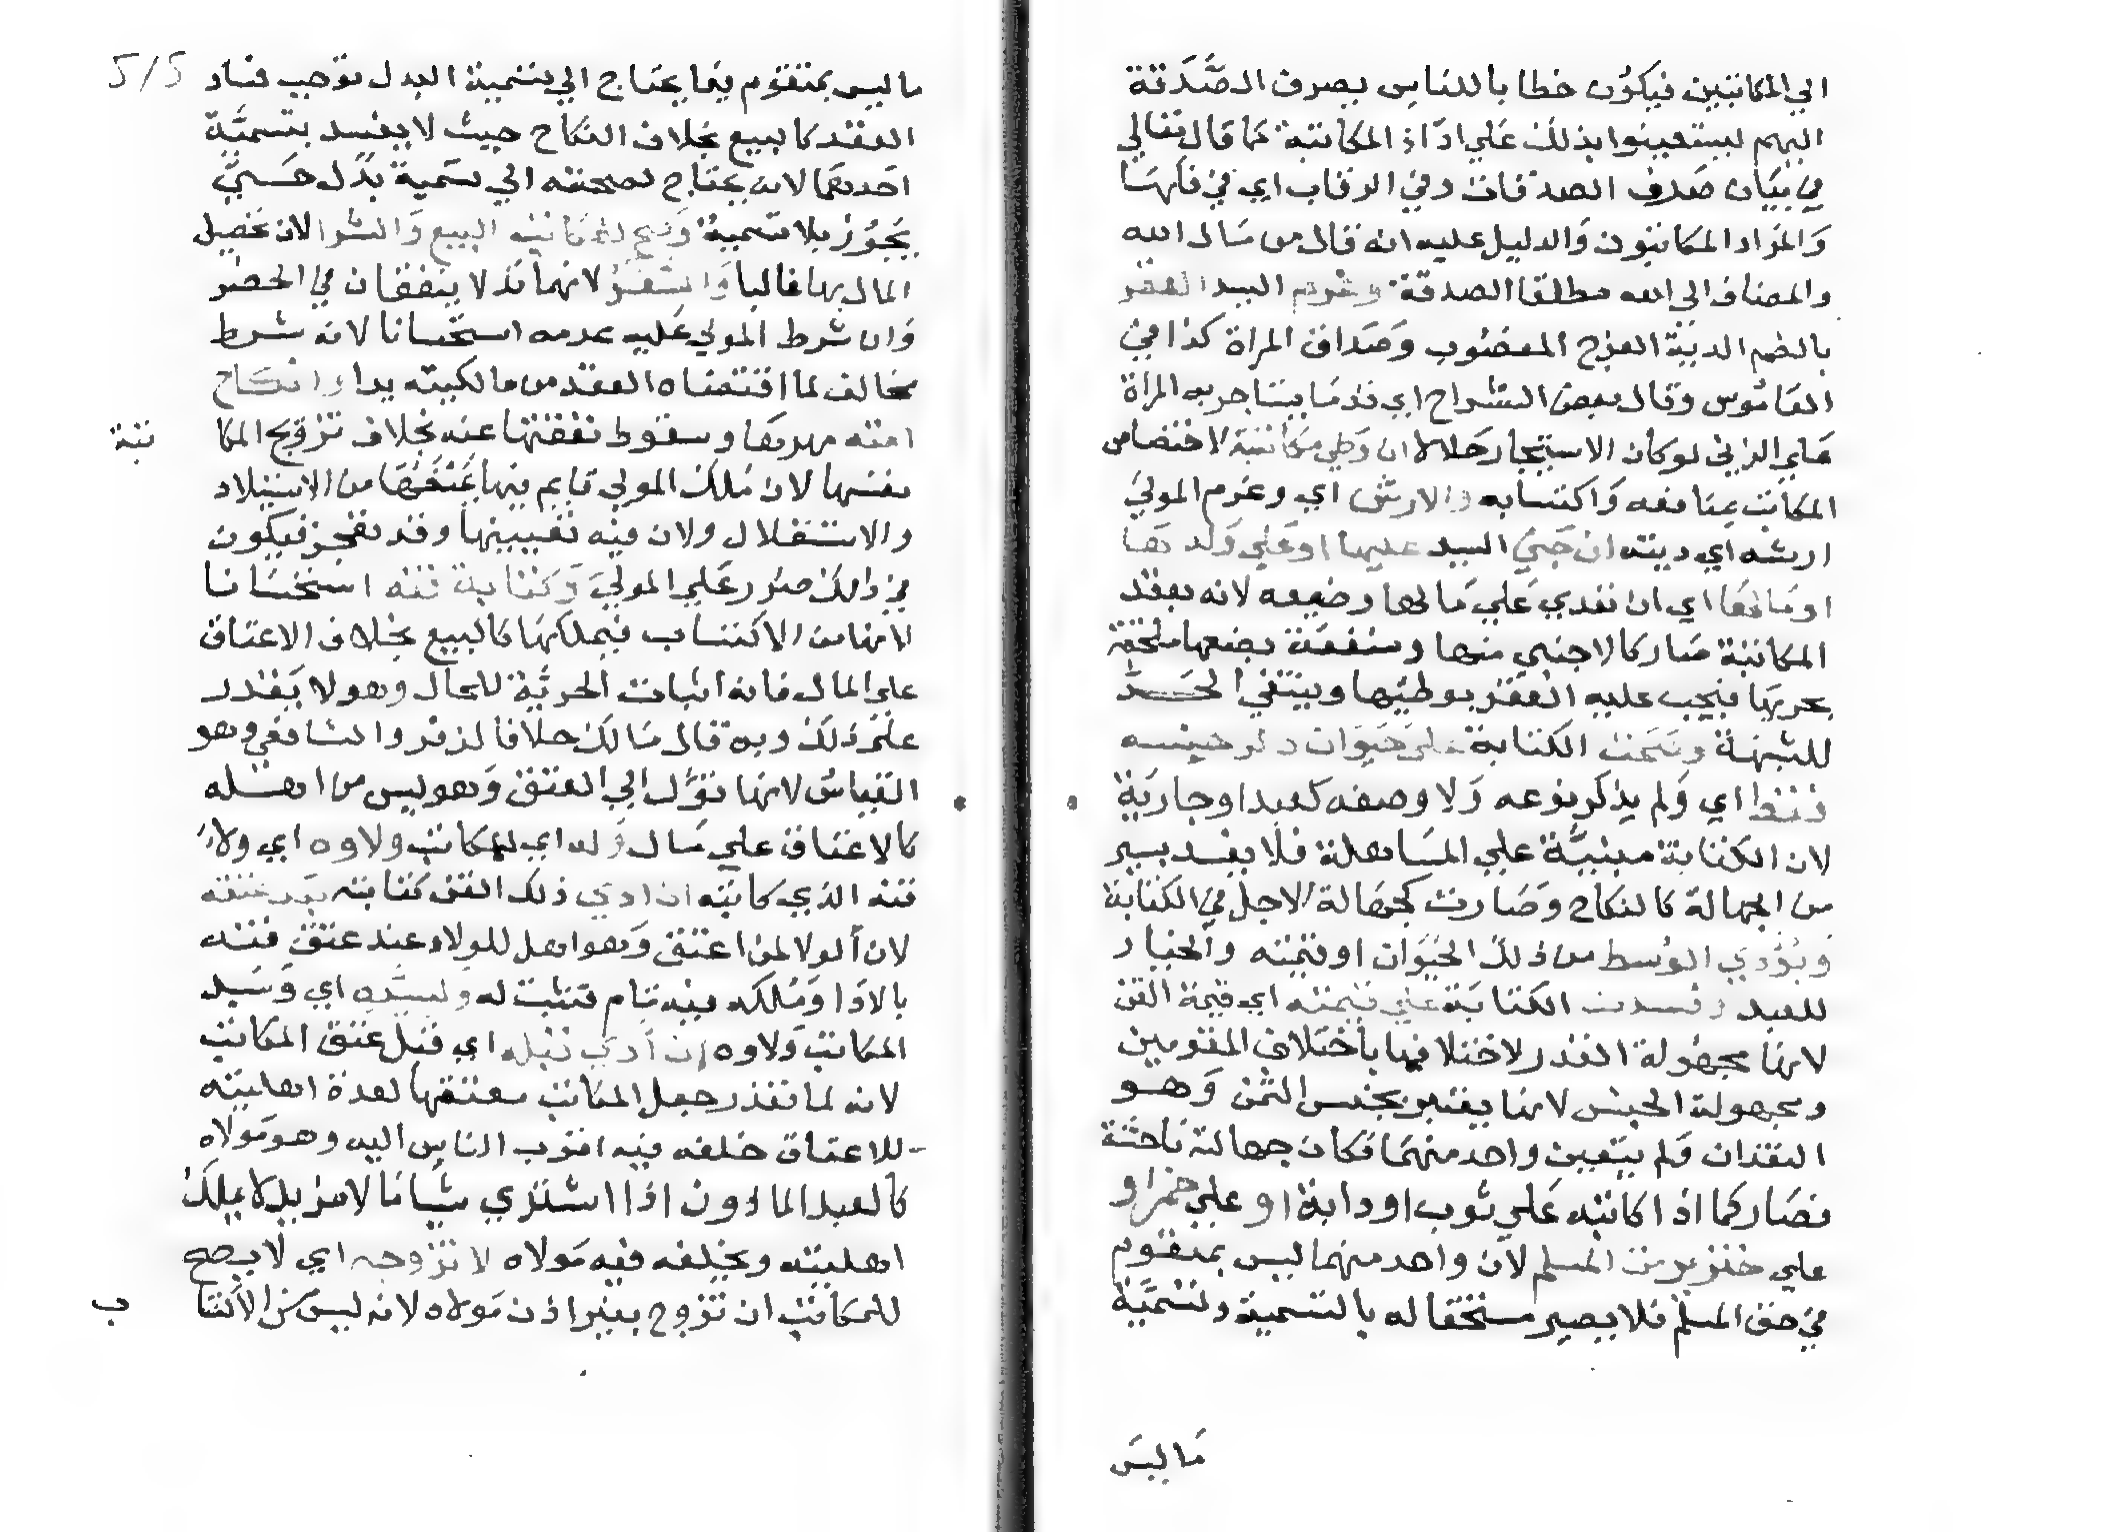 الي المكاتبين فيكون خطا بالناس بصرف الصَّدَقة
اليهم ليستعينوا بذلك علي اداء المكاتبة كما قال تعالي
في بيان صرف الصدقات وفي الرقاب اي في فكها
والمراد المكاتبون والدليل عليه انه قال من مال الله
والمضاف الي الله مطلقا الصدقة وغرم السيد العقر
بالضم الدية الفرج المغصوب وصداق المراة كذا في
القاموس وقال بعض الشراح اي قدر ما يستاجر به المراة
علي الزني لو كان الاستيجار حلالا ان وطي مكاتبة لاختصاص
المكاتب بمنافعه واكتسابه والارش اي وغرم المولي
ارشه اي ديته ان جني السيد عليها او علي ولدها
او مالها اي ان تعدي علي مالها وضيعه لانه بعقد
المكاتبة صار كالاجنبي منها ومنفعة بضعها ملحقة
بحريتها فيجب عليه العقر بوطيها وينتفي الحد
للشبهة وصحت الكتابة علي حيوان ذكر جنسه
فقط اي ولم يذكر نوعه ولا وصفه كعبد او جارية
لان الكتابة مبنيَّة علي المساهلة فلا يفسد بيسير
من الجهالة كالنكاح وصارت كجهالة الاجل في الكتابة
ويؤدي الوسط من ذلك الحيوان او قيمته والخيار
للعبد وفسدت الكتابة علي قيمته اي قيمة القن
لانها مجهولة القدر لاختلافها باختلاف المقومين
ومجهولة الجنس لانها يعتبر بجنس الثمن وهو
النقدان ولم يتعين واحد منهما فكان جهالته فاحشة
فصار كما اذا كاتبه علي ثوب او دابة او علي خمر او
علي خنزير من المسلم لان واحد منهما ليس بمتقوم
في حق المسلم فلا يصير مستحقا له بالتسمية وتسميَّة
ما ليس
5/5
ما ليس بمتقوم فيما يحتاج الي تسمية البدل توجب فساد
العقد كالبيع بخلاف النكاح حيث لا يفسد بتسميَّة
احدهما لانه يحتاج لصحته الي تسمية بدل حتي
يجوز بلا تسمية وصح للمكاتبه البيع والشرا لان تحصيل
المال بهما غالبا والسفر لانهما قد لا يتفقان في الحضر
وان شرط المولي عليه عدمه استحسانا لانه شرط
مخالف لما اقتضاه العقد من مالكيته يدا وانكاح
امته مهرها وسقوط نفقتها عنه بخلاف تزويج المكا
تبة
نفسها لان ملك المولي قايم فيها من الاستيلاد
والاستقلال ولان فيه تعييبها وقد تعجز فيكون
في ذلك ضرر علي المولي وكتابة قنه استحسانا
لانها من الاكتساب فيملكها كالبيع بخلاف الاعتاق
علي المال فانه اثبات الحريَّة للحال وهو لا يقدر
علي ذلك وبه قال مالك خلافا لزفر والشافعي وهو
القياس لانها تؤل الي العتق وهو ليس من اهله
كالاعتاق علي مال وله اي للمكاتب ولاوه اي ولاء
قنه الذي كاتبه ان ادي ذلك القن كتابته بعد عتقه
لان الولا لمن اعتق وهو اهل للولاء عند عتق قنه
بالادا وملكه فيه تام فتثبت له ولسيده اي وسيد
المكاتب ولاوه إن أدي قبله اي قبل عتق المكاتب
لانه لما تعذر جعل المكاتب معتقها لعدة اهليته
للاعتاق خلفه فيه اقرب الناس اليه وهو مولاه
كالعبد الماذون اذا اشتري شيا لا يملك
اهليته ويخلفه فيه مولاه لا تزوجه اي لا يصح
للمكاتب ان تزوج بغير اذن مولاه لانه ليس من الاكتسا
ب